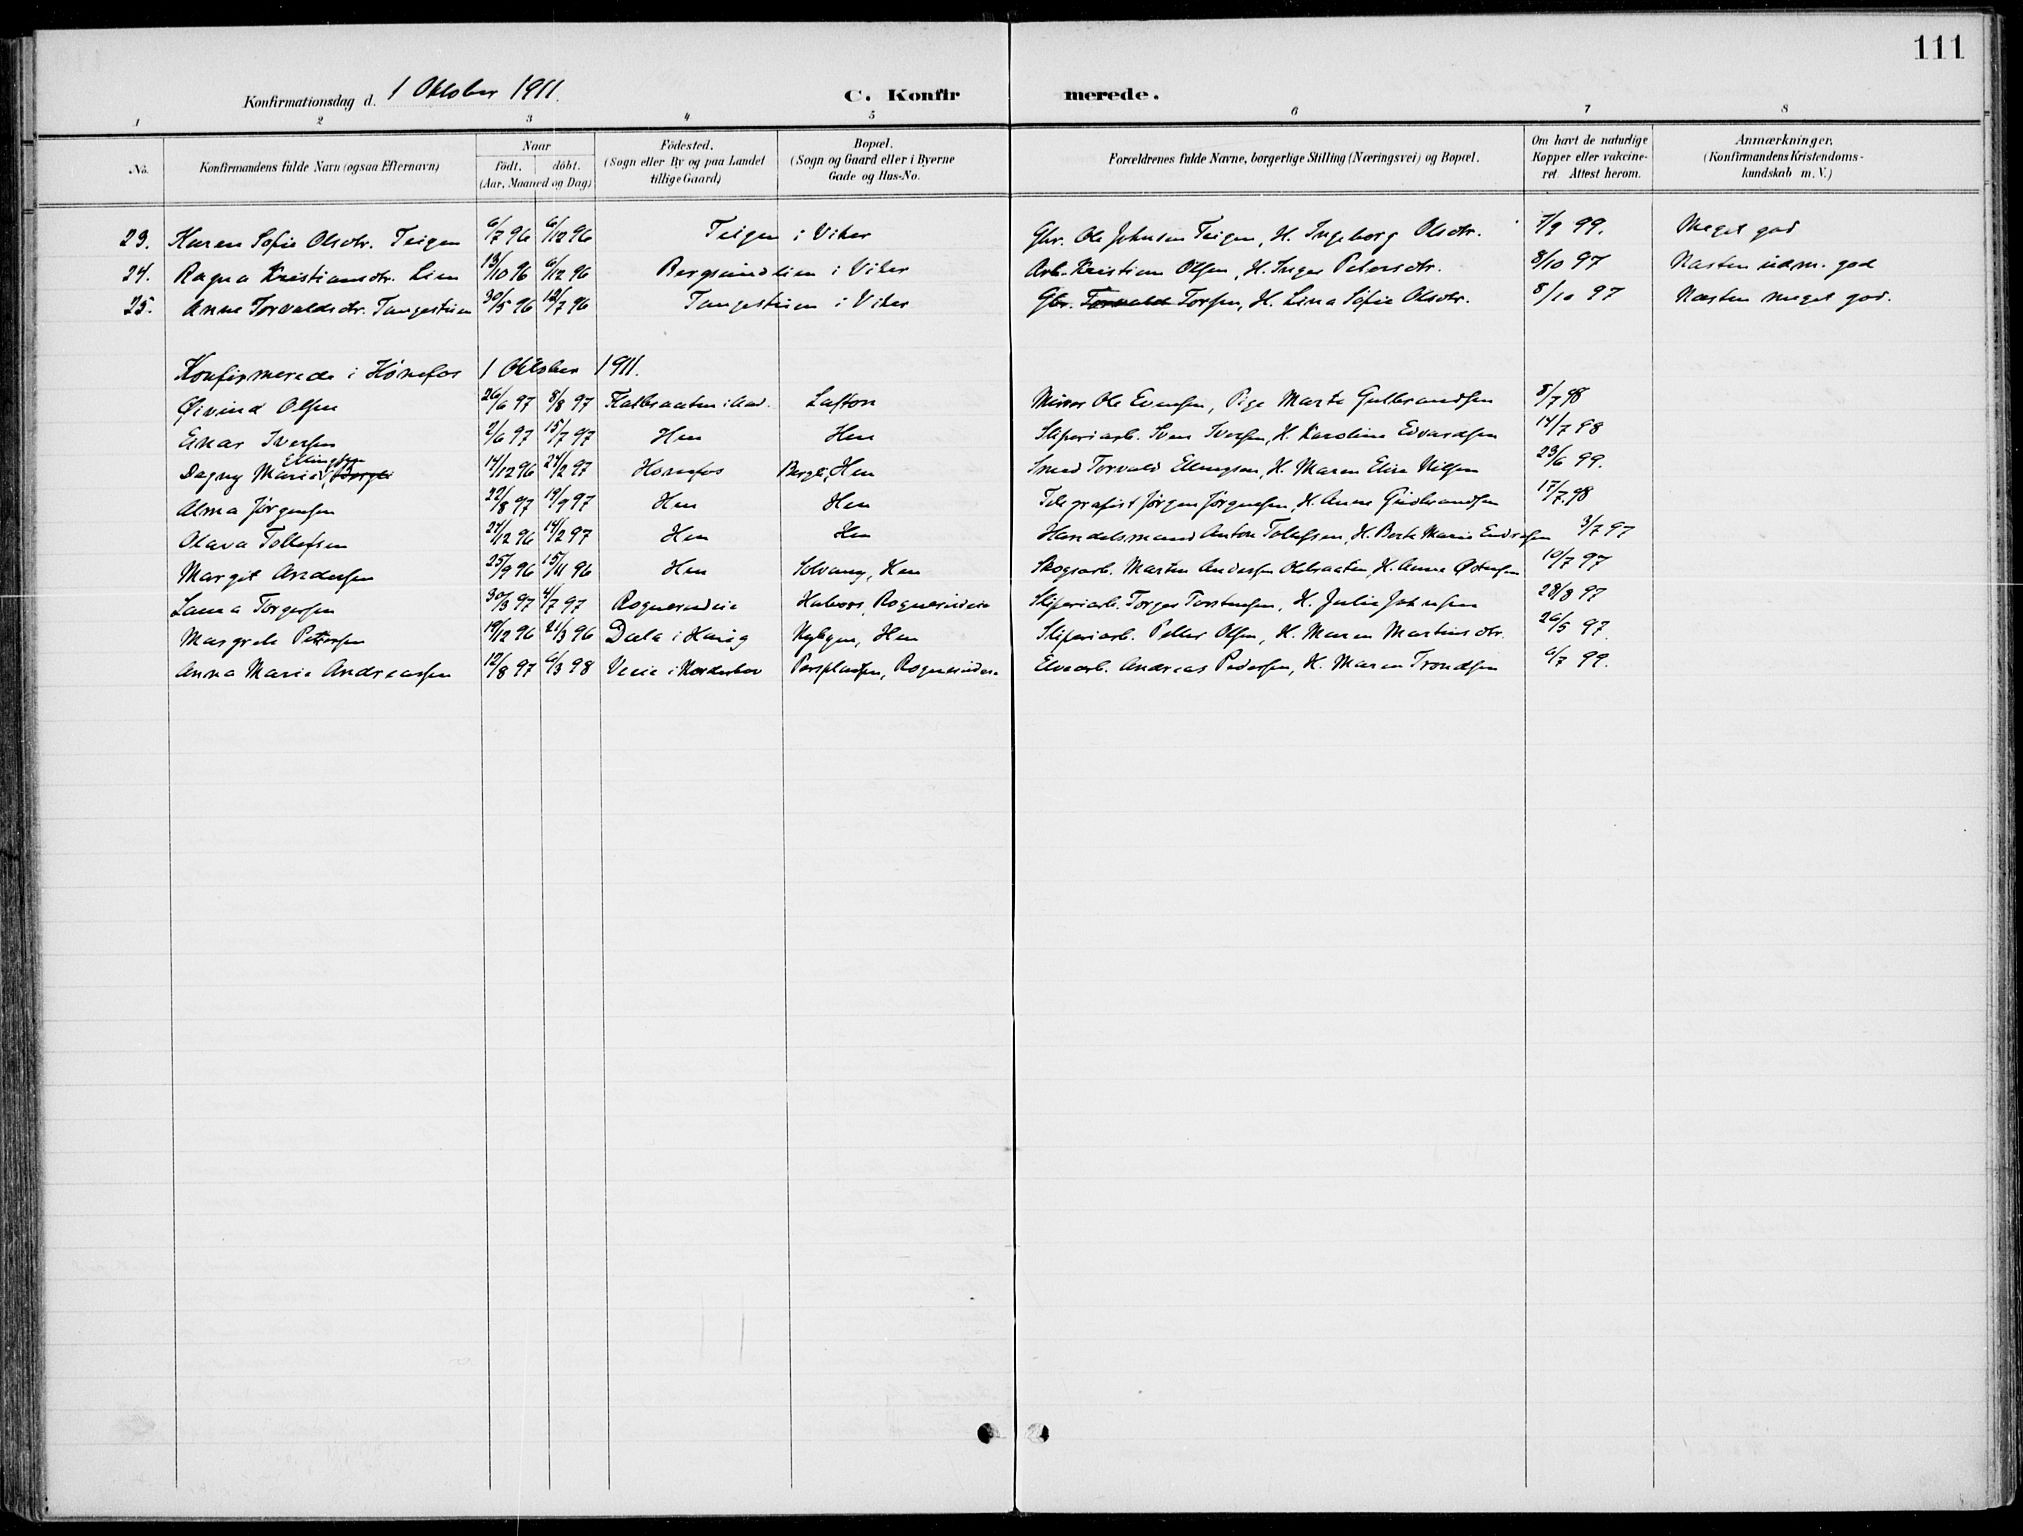 111
Konfirmationsdag d. 1 Oktober 1911. C. Konfirmerede.
1 2 3 4 5 6 7 8
No. Konfirmandens fulde Navn (ogsaa Efternavn) Naar födt. döbt. (Aar, Maaned og Dag) Födested. (Sogn eller By og paa Landet tillige Gaard) Bopæl. (Sogn og Gaard eller i Byerne Gade og Hus-No. Forældrenes fulde Navne, borgerlige Stilling (Næringsvei) og Bopæl. Om havt de naturlige Kopper eller vakcineret. Attest herom. Anmærkninger. (Konfirmandens Kristendomskundskab m. V.)
23. Karen Sofie Olsdtr. Teigen 6/7 96 6/12 96 Teigen i Viker Gbr. Ole Johnsen Teigen, H. Ingeborg Olsdtr. 7/9 99. Meget god
24. Ragna Kristiansdtr. Lien 13/10 96 6/12 96 Bergsundlien i Viker Arb. Kristian Olsen, H. Inger Petersdtr. 8/10 97 Næsten udm. god
25. Anne Torvaldsdtr. Tangestuen 30/5 96 12/7 96 Tangestuen i Viker Gbr. Torvald Torsen, H. Lina Sofie Olsdtr. 8/10 97 Næsten meget god.
Konfirmerede i Hønefos 1 Oktober 1911.
Øivind Olsen 26/6 97 8/8 97 Kalbraaten i Aad. Lafton Ole Evensen, Pige Marte Gulbrandsen 8/7 98
Einar Iversen 2/6 97 15/7 97 Hen Hen Sliperiarb. Sven Iversen, H. Karoline Edvardsen 14/7 98
Dagny Marie Ellingsen 14/12 96 24/2 97 Hønefos Bergli, Hen Smed Torvald Ellingsen, H. Maren Elise Nilsen 23/6 99.
Alma Jørgensen 22/8 97 19/9 97 Hen Hen Telegrafist Jørgen Jørgensen, H. Anne Gudbrandsen 17/7 98
Olava Tollefsen 27/12 96 14/2 97 Hen Hen Handelsmand Anton Tollefsen, H. Berte Marie Endresen 3/7 97
Margit Andersen 25/9 96 15/11 96 Hen Solvang, Hen Skogsarb. Martin Andersen Olsbraaten, H. Anne Østensen 10/7 97
Laura Torgersen 30/3 97 4/7 97 Rognerudeie Rognerudeie Sliperiarb. Torger Torstensen, H. Julie Johnsen 28/8 97
Margrete Pettersen 19/12 96 21/3 96 Dæla i Haug Nybygn, Hen Sliperiarb. Petter Olsen, H. Maren Martinsdtr. 26/5 97.
Anna Marie Andreassen 12/8 97 6/3 98 Veeie i Norderhov Persplassen, Rognerudeie Elvearb. Andreas Pedersen, H. Maren Trondsen 6/7 99.